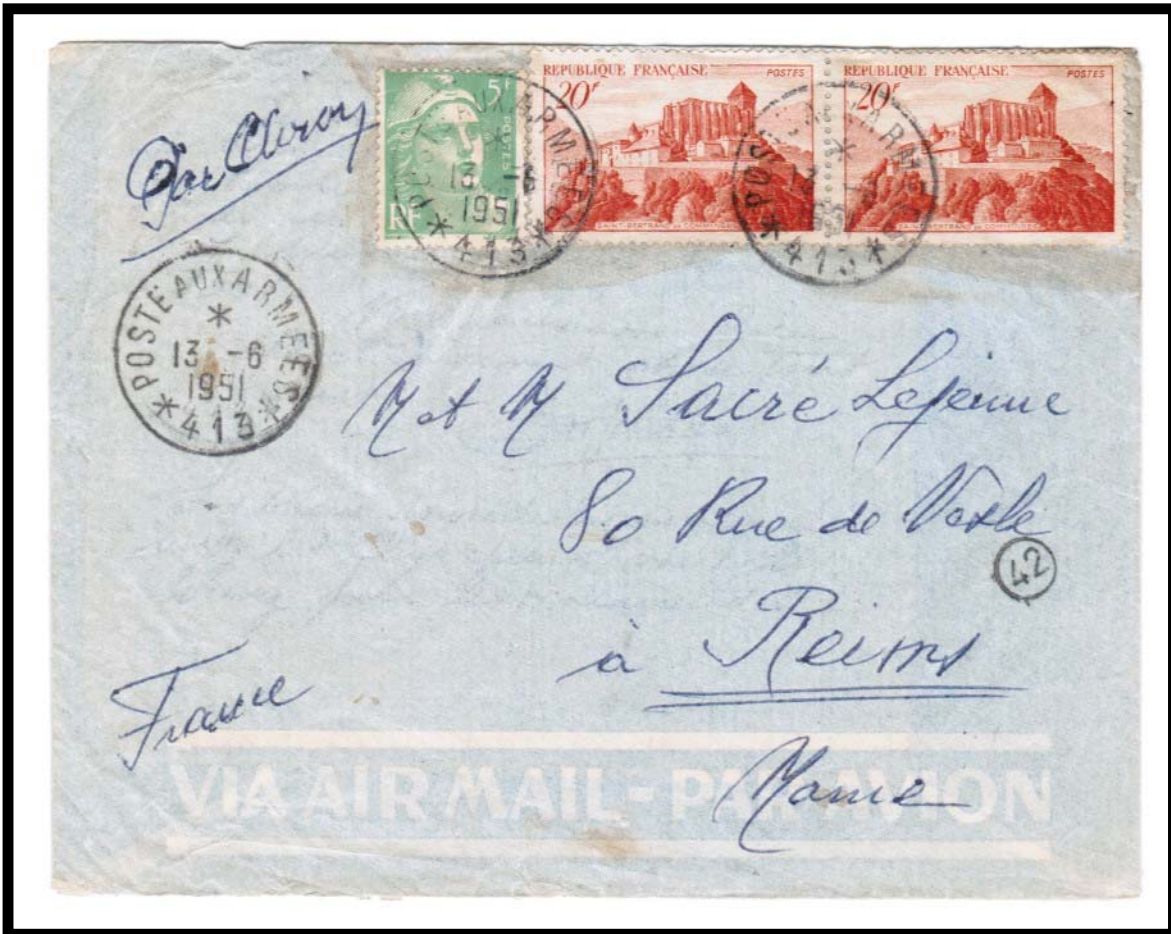 Par Avion
5F
POSTES
RF
REPUBLIQUE FRANÇAISE POSTES
20F
SAINT-BERTRAND DE COMMINGES
REPUBLIQUE FRANÇAISE POSTES
20F
SAINT-BERTRAND DE COMMINGES
POSTE AUX ARMEES
*
13 -6
1951
* 413 *
POSTE AUX ARMEES
*
13 -6
1951
* 413 *
POSTE AUX ARMEES
*
13 -6
1951
* 413 *
M et M Sacré Lejeune
80 Rue de Vesle
42
à Reims
France
Marne
VIA AIR MAIL - PAR AVION